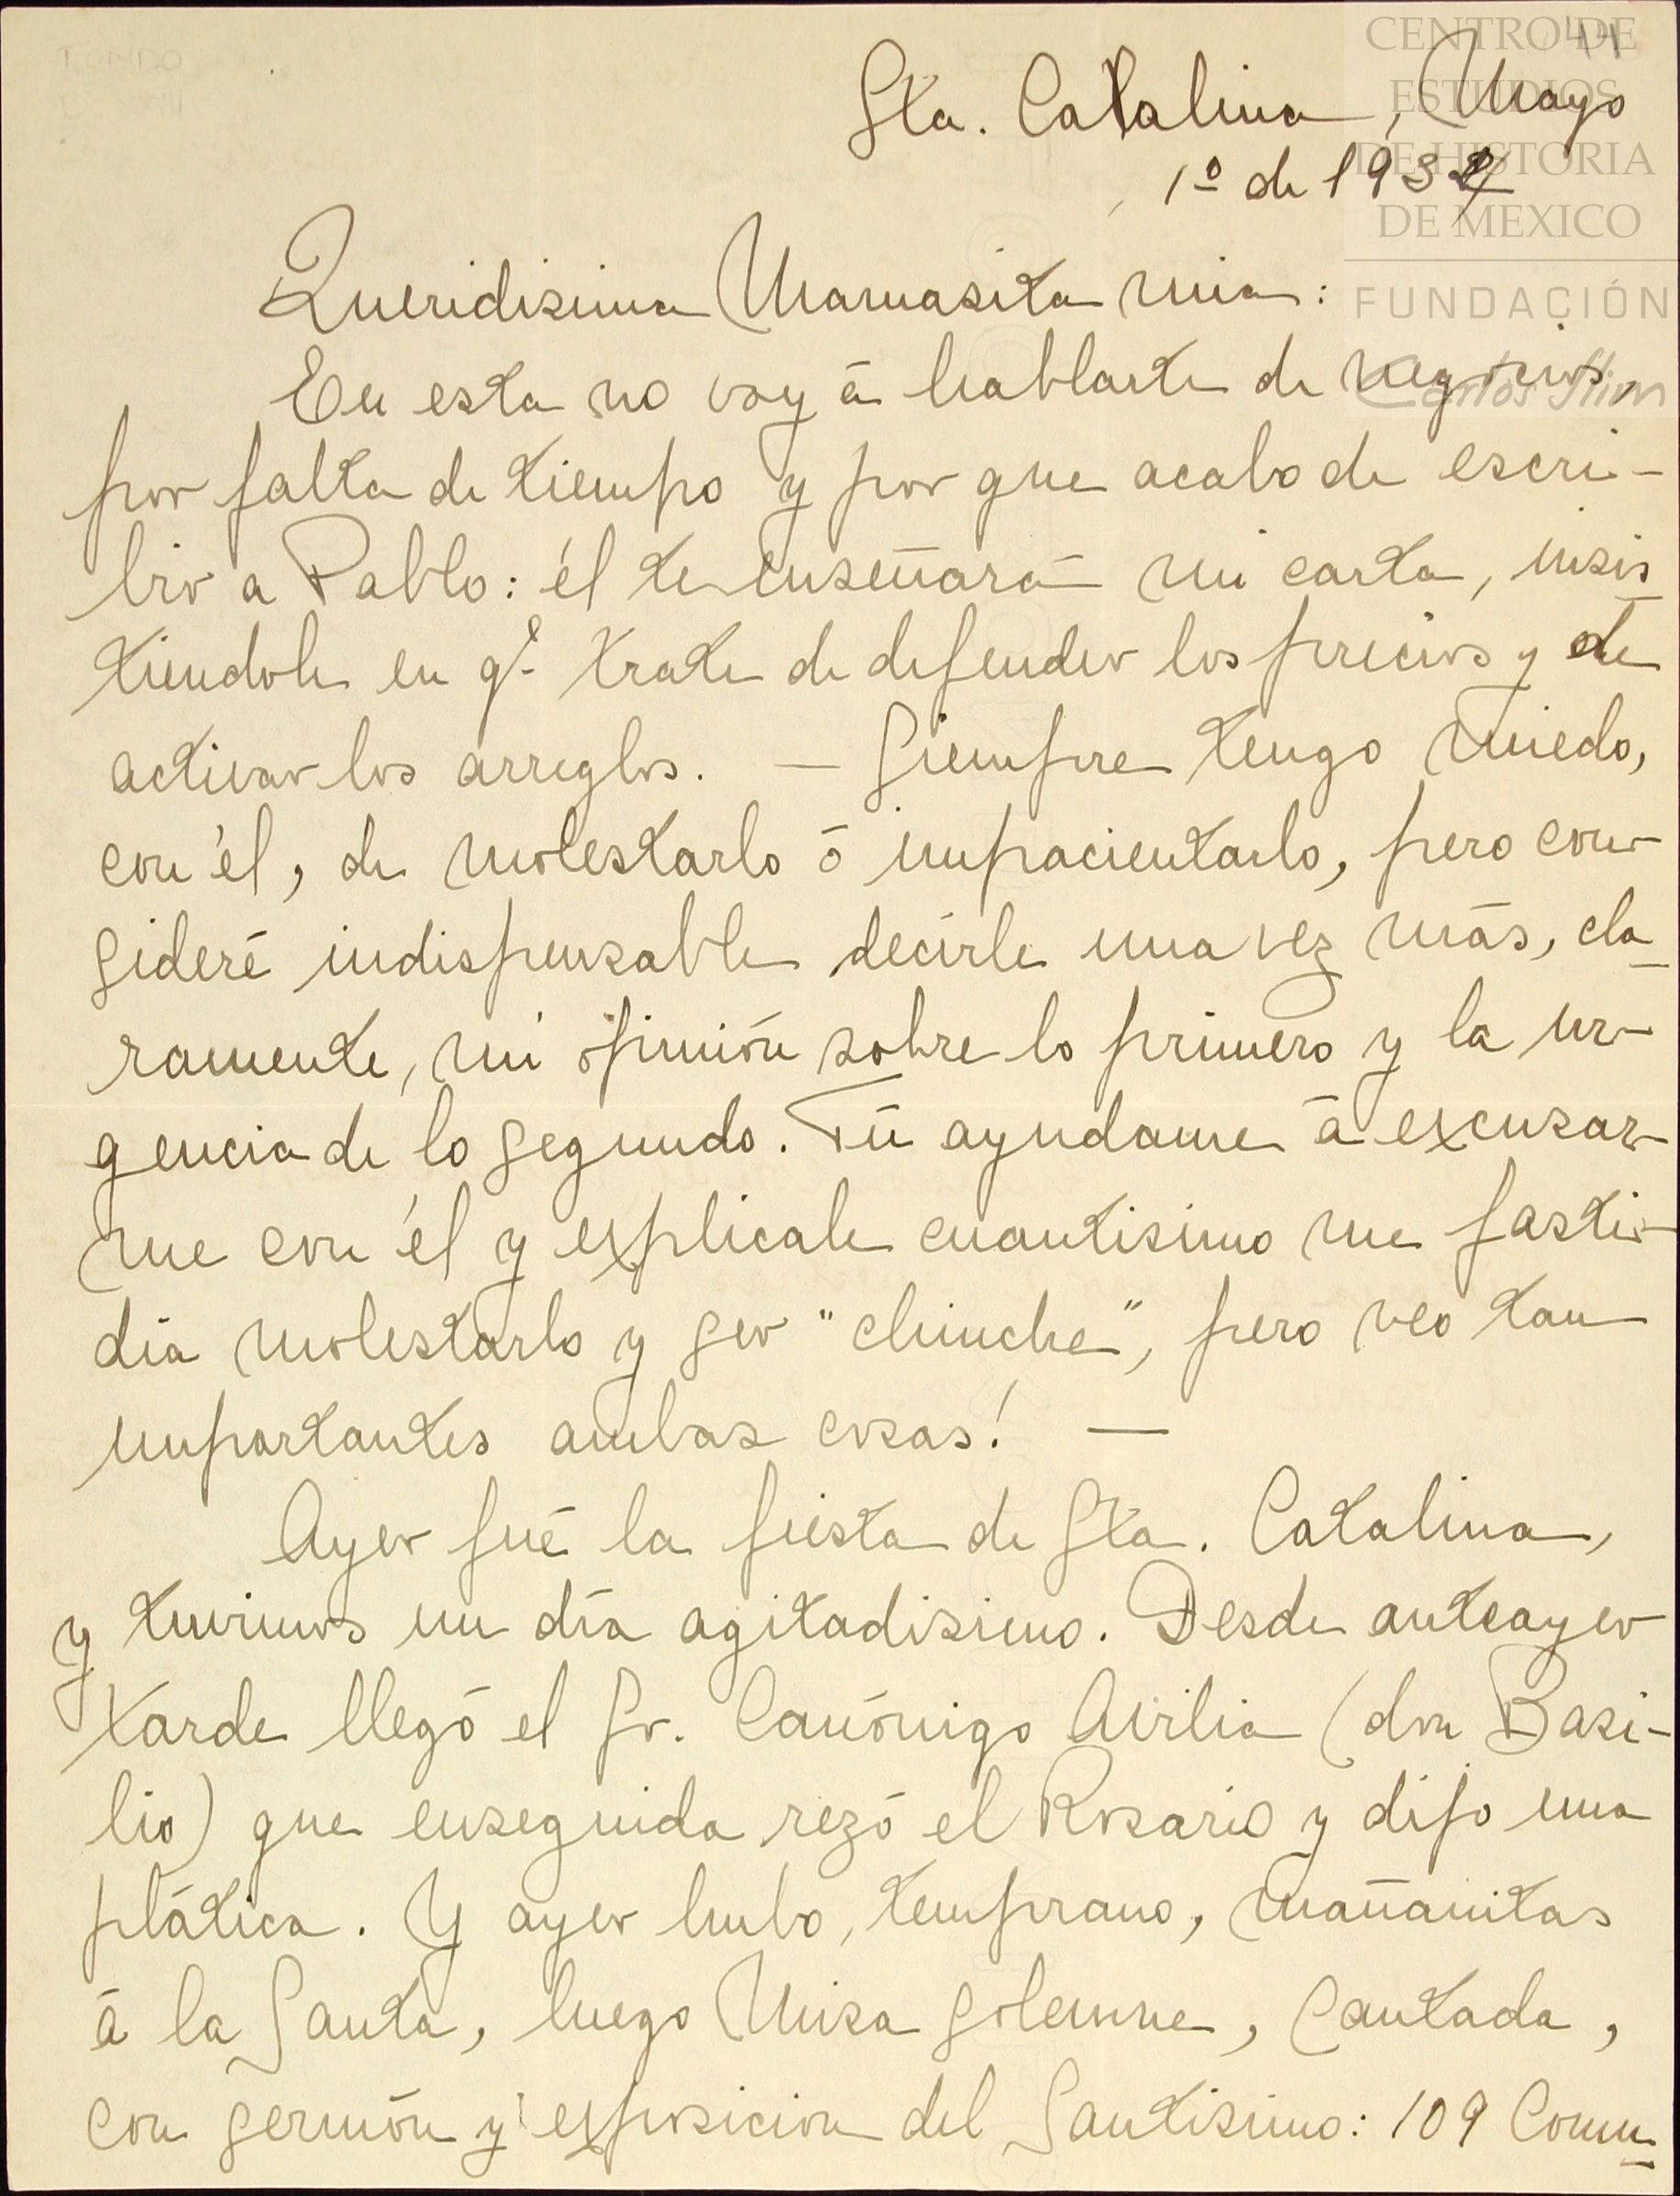 44
CENTRO DE
ESTUDIOS
DE HISTORIA
DE MEXICO
FUNDACIÓN
Carlos Slim
FONDO
Sta. Catalina, Mayo
1º de 1932
Queridisima Mamasita mia:
En esta no voy á hablarte de negocios,
por falta de tiempo y por que acabo de escri-
bir a Pablo: él te enseñará mi carta, insis
tiendole en qe. trate de defender los precios y de
activar los arreglos. — Siempre tengo miedo,
con él, de molestarlo ó impacientarlo, pero con-
sideré indispensable decirle una vez más, cla
ramente, mi opinión sobre lo primero y la ur-
gencia de lo segundo. Tú ayudame á excusar-
me con él y explicale cuantisimo me fasti-
dia molestarlo y ser "chinche", pero veo tan
importantes ambas cosas! —
Ayer fué la fiesta de Sta. Catalina,
y tuvimos un día agitadisimo. Desde anteayer
tarde llegó el Sr. Canónigo Avilia (don Basi-
lio) que enseguida rezó el Rosario y dijo una
plática. Y ayer hubo, temprano, mañanitas
á la Santa, luego Misa solemne, Cantada,
con sermón y exposicion del Santisimo: 109 Comu